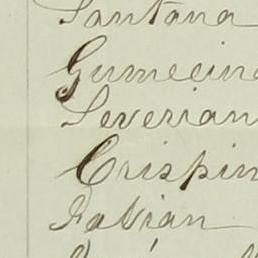 Santana
Gumecin
Severian
Crispin
Fabian